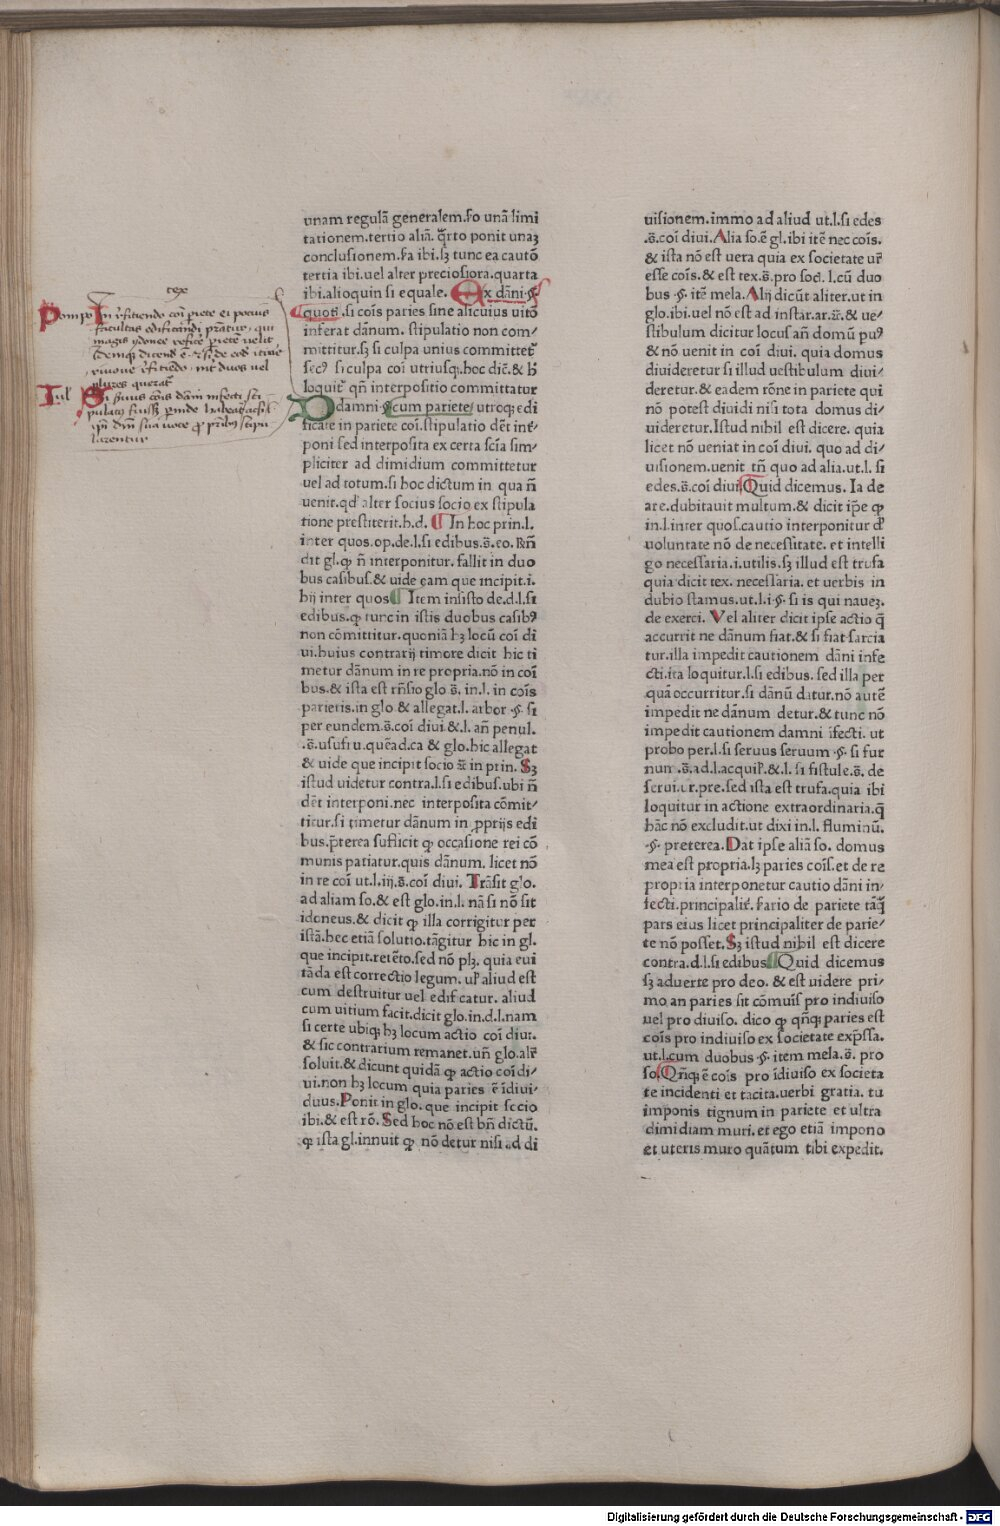 tex
Pompo In
facultas edificandi
Jul Si
unam regulā generalem. so unā limi
tationem. tertio aliā. q̄rto ponit unaꝫ
conclusionem. sa ibi. sꝫ tunc ea cautō
tertia ibi. uel alter preciosiora. quarta
ibi. alioquin si equale. Ex dāni .§.
quoti. si cois paries sine alicuius uitō
inferat dānum. stipulatio non com⸗
mittitur. sꝫ si culpa unius committet᷑
secꝰ si culpa coi utriusqꝫ. hoc dic̄. & h̄
loquit᷑ qn̄ interpositio committatur
Damni .§. cum pariete utroqꝫ edi
ficare in pariete coi. stipulatio dēt int᷑⸗
poni sed interposita ex certa sc̄ia sim⸗
pliciter ad dimidium committetur
uel ad totum. si hoc dictum in qua n̄
uenit. qd̓ alter socius socio ex stipula
tione prestiterit. h.d. ¶ In hoc prin. l.
inter quos. op. de. l. si edibus. s̄. eo. Rn̄
dit gl. ꝙ n̄ interponitur. fallit in duo
bus casibus. & uide eam que incipit. i.
hij inter quos ¶ Item insisto de. d. l. si
edibus. ꝙ tunc in istis duobus casibꝰ
non cōmittitur. quoniā hꝫ locū coi di
ui. huius contrarij timore dicit hic ti
metur dānum in re propria. nō in coī
bus. & ista est rn̄sio glo s̄. in. l. in cois
parietis. in glo & allegat. l. arbor .§. si
per eundem. s̄. coi diui. &. l. an̄ penul.
.s̄. usufru. quēad. ca & glo. hic allegat
& uide que incipit socio in prin. Sꝫ
istud uidetur contra. l. si edibus. ubi n̄
dēt interponi. nec interposita cōmit⸗
titur. si timetur dānum in ꝓprijs edi
bus. p̄terea sufficit ꝙ occasione rei cō
munis patiatur. quis dānum. licet nō
in re coi ut. l. iij. s̄. coi diui. Trāsit glo.
ad aliam so. & est glo. in. l. nā si nō sit
idoneus. & dicit ꝙ illa corrigitur per
istā. hec etiā solutio. tāgitur hic in gl.
que incipit. retēto. sed nō plꝫ. quia eui
tāda est correctio legum. ul̓ aliud est
cum destruitur uel edificatur. aliud
cum uitium facit. dicit glo. in. d. l. nam
si certe ubiqꝫ hꝫ locum actio coi diui.
& sic contrarium remanet. un̄ glo. alr̄
soluit. & dicunt quidā ꝙ actio coi di⸗
ui. non hꝫ locum quia paries ē īdiui⸗
duus. Ponit in glo. que incipit socio
ibi. & est rō. Sed hoc nō est bn̄ dictū.
ꝙ ista gl. innuit ꝙ nō detur nisi ad di
uisionem. immo ad aliud ut. l. si edes
.s̄. coi diui. Alia so. ē gl. ibi itē nec cois.
& ista nō est uera quia ex societate ul̓
esse cois. & est tex. s̄. pro soci. l. cū duo
bus .§. itē mela. Alij dicūt aliter. ut in
glo. ibi. uel nō est ad instar. & ue⸗
stibulum dicitur locus an̄ domū puꝰ
& nō uenit in coi diui. quia domus
diuideretur si illud uestibulum diui⸗
deretur. & eadem rōne in pariete qui
nō potest diuidi nisi tota domus di⸗
uideretur. Istud nihil est dicere. quia
licet nō ueniat in coi diui. quo ad di⸗
uisionem. uenit tn̄ quo ad alia. ut. l. si
edes. s̄. coi diui. Quid dicemus. Ia de
are. dubitauit multum. & dicit ip̄e ꝙ
in. l. inter quos. cautio interponitur d̓
uoluntate nō de necessitate. et intelli
go necessaria. i. utilis. sꝫ illud est trufa
quia dicit tex. necessaria. et uerbis in
dubio stamus. ut. l. i .§. si is qui naueꝫ.
de exerci. Vel aliter dicit ipse actio q̄
accurrit ne dānum fiat. & si fiat sarcia
tur. illa impedit cautionem dāni infe
cti. ita loquitur. l. si edibus. sed illa per
quā occurritur. si dānū datur. nō autē
impedit ne dānum detur. & tunc nō
impedit cautionem damni ifecti. ut
probo per. l. si seruus seruum .§. si fur
num. s̄. ad. l. acquil̓. &. l. si fistule. s̄. de
serui. ur. pre. sed ista est trufa. quia ibi
loquitur in actione extraordinaria. q̄
hāc nō excludit. ut dixi in. l. fluminū.
.§. preterea. Dat ipse aliā so. domus
mea est propria. lꝫ paries cois. et de re
propria interponetur cautio dāni in⸗
fecti. principalit᷑. sario de pariete tāq̄
pars eius licet principaliter de parie⸗
te nō posset. Sꝫ istud nihil est dicere
contra. d. l. si edibus ¶ Quid dicemus
sꝫ aduerte pro deo. & est uidere pri⸗
mo an paries sit cōmuis pro indiuiso
uel pro diuiso. dico ꝙ qn̄qꝫ paries est
cois pro indiuiso ex societate exp̄ssa.
ut. l. cum duobus .§. item mela. s̄. pro
so. Qn̄qꝫ ē cois pro īdiuiso ex societa
te incidenti et tacita. uerbi gratia. tu
imponis tignum in pariete et ultra
dimidiam muri. et ego etiā impono
et uteris muro quātum tibi expedit.
Digitalisierung gefördert durch die Deutsche Forschungsgemeinschaft - DFG